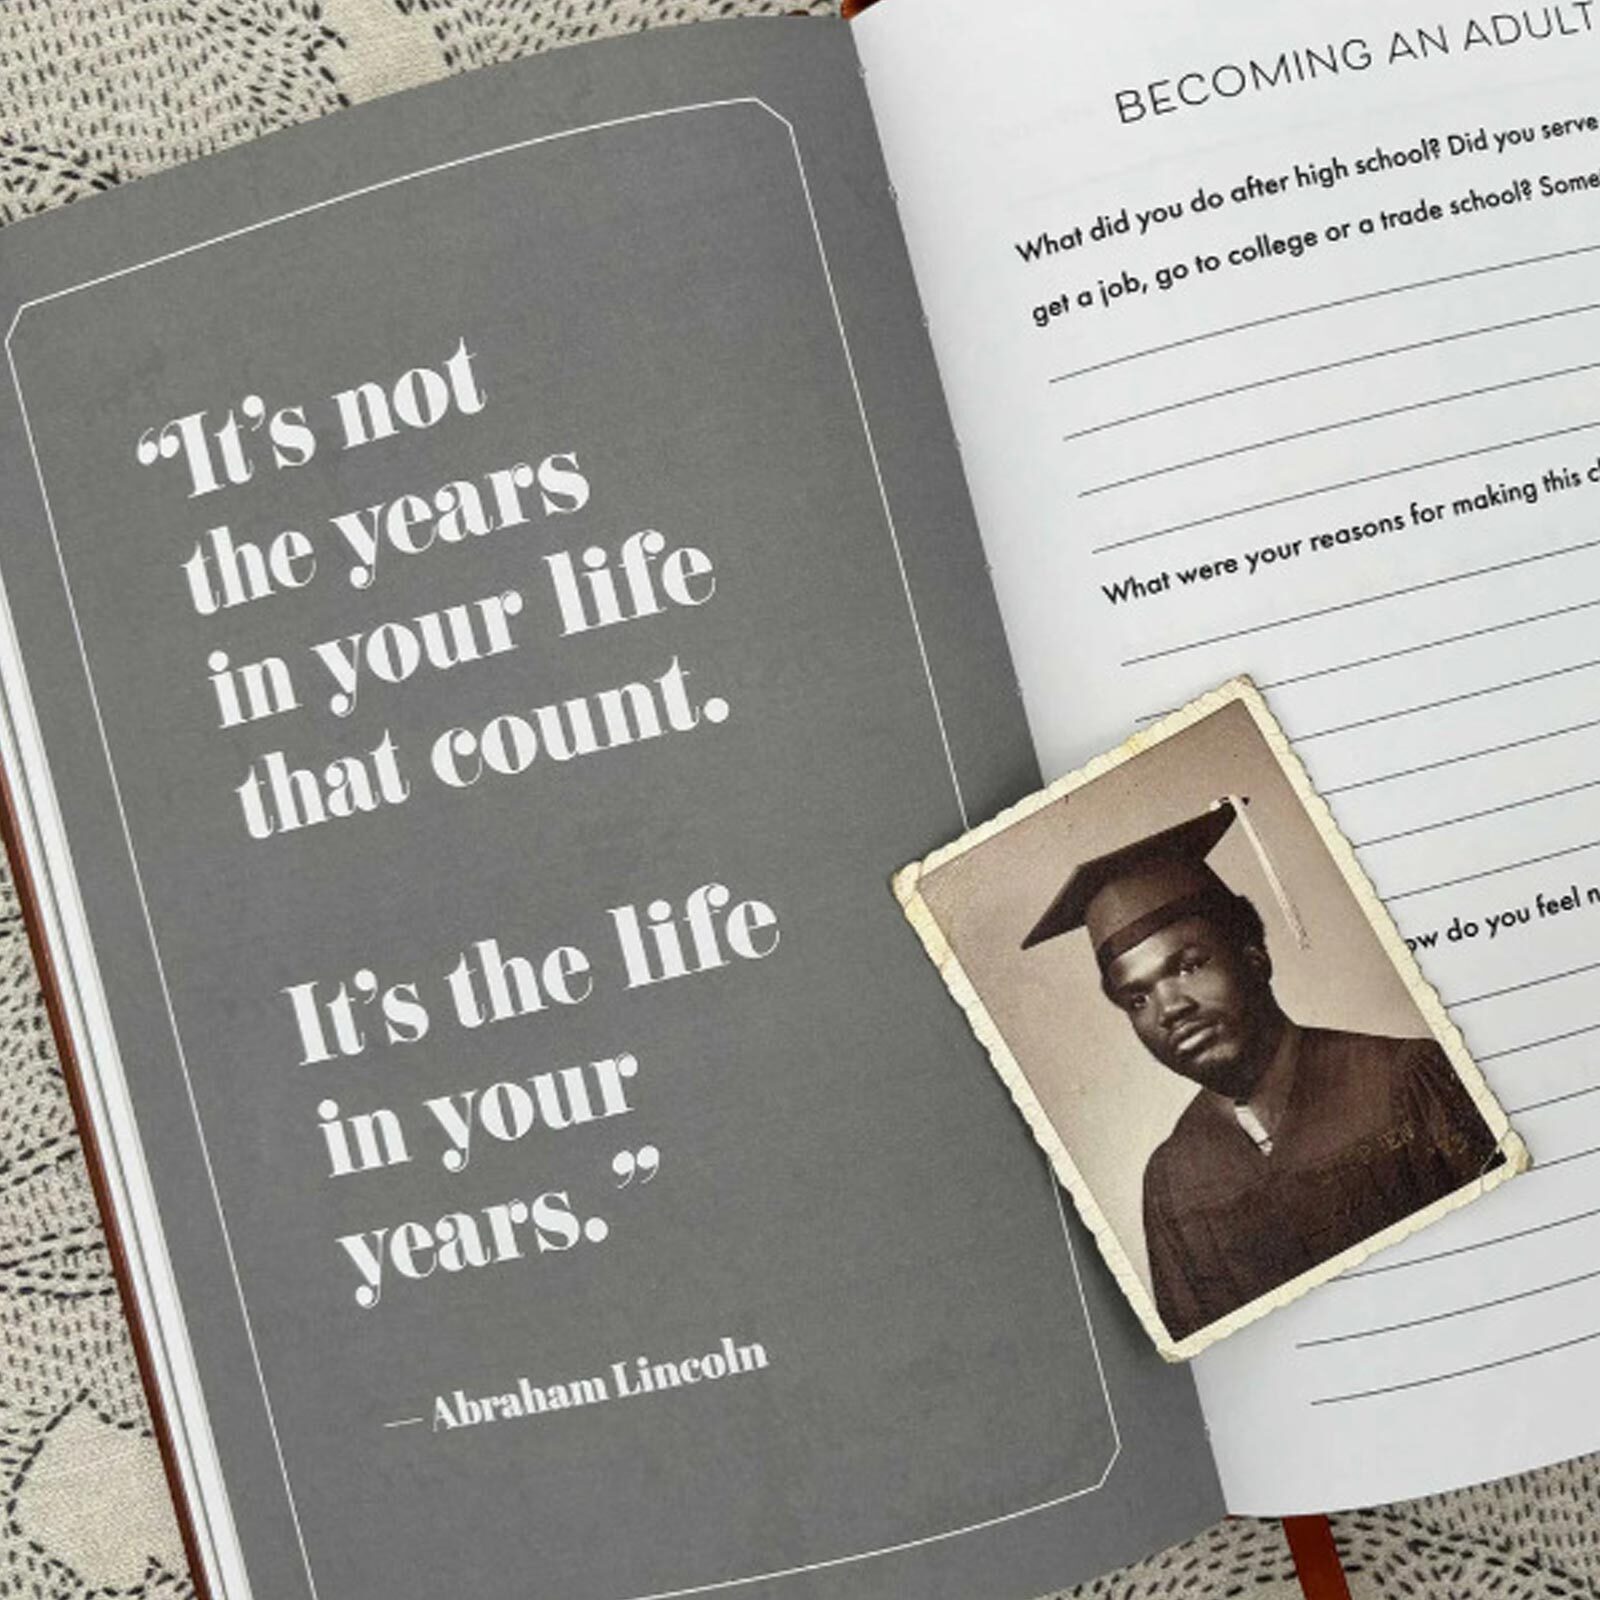 “It’s not
the years
in your life
that count.
It’s the life
in your
years.”
— Abraham Lincoln
BECOMING AN ADULT
What did you do after high school? Did you serve
get a job, go to college or a trade school?
What were your reasons for making this
do you feel